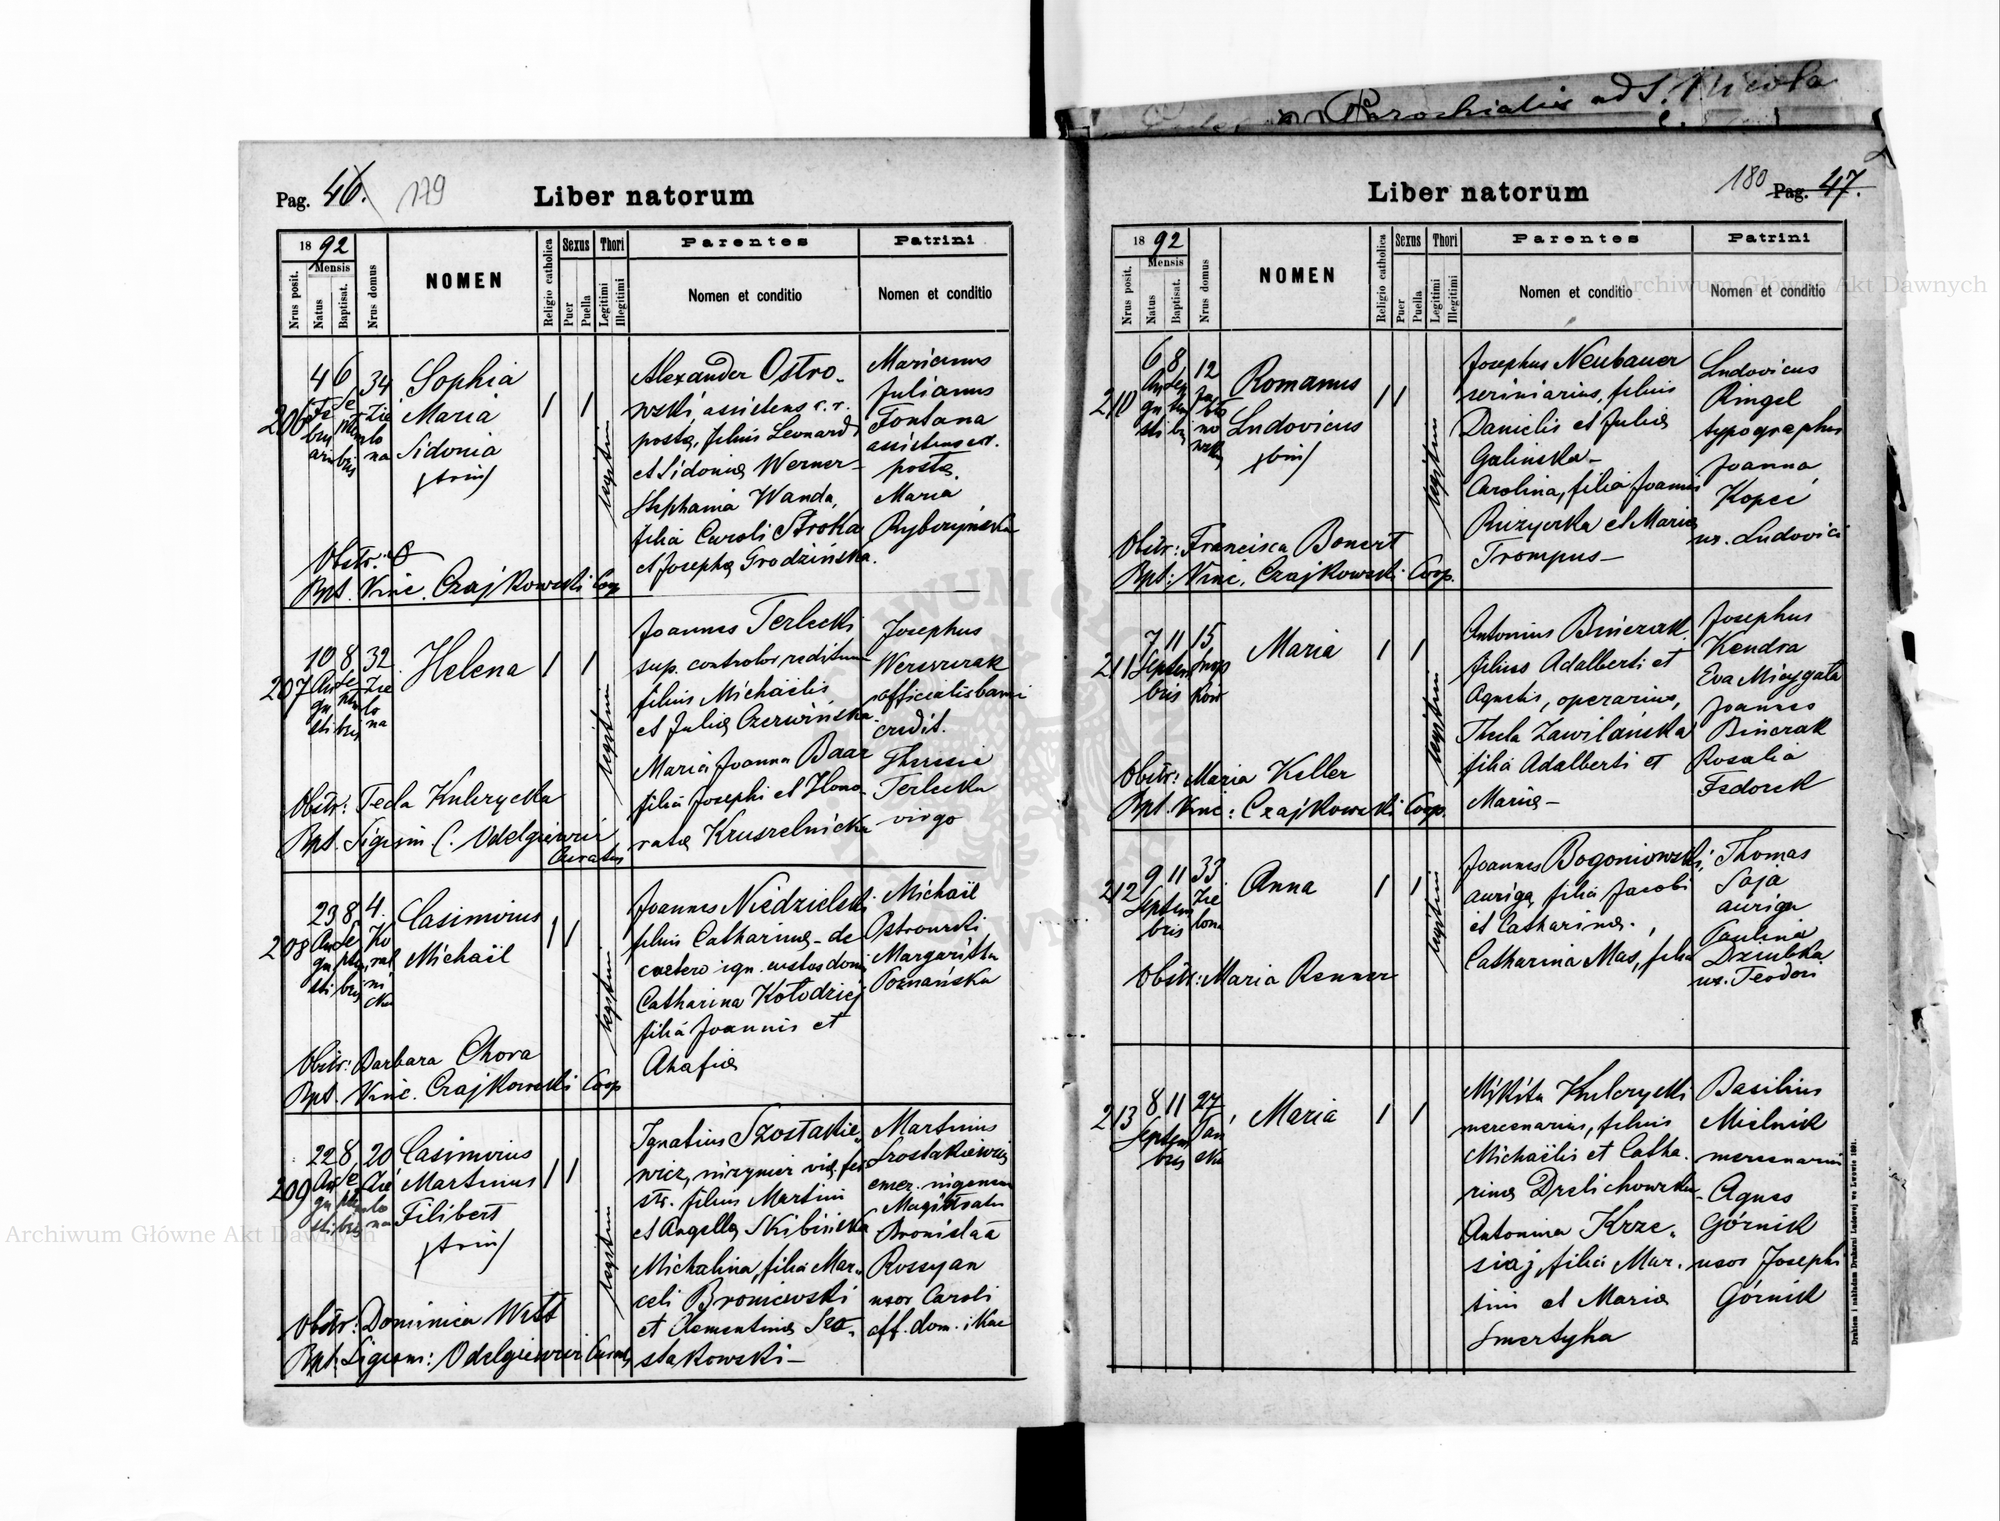 Parochialis ad S. Nicola
Pag. 46. 179
Liber natorum
1892
Mensis
Nrus posit.
Natus
Baptisat.
Nrus domus
NOMEN
Religio catholica
Sexus
Puer
Puella
Thori
Legitimi
Illegitimi
Parentes
Nomen et conditio
Patrini
Nomen et conditio
206
4 6 34
Fe
bru
arii
Se
ptem
bris
Zie
lo
na
Sophia
Maria
Sidonia
(trin)
1 1
legitim
Alexander Ostro-
wski, assistens c. r.
postae, filius Leonardi
et Sidoniae Werner-
Stephania Wanda,
filia Caroli Stroka
et Josephae Grodzińska.
Marianus
Julianus
Fontana
assistens c. r.
postae
Maria
Rybczyńska
Obstr:
Bpt. Vinc. Czajkowski Coop
207
10 8 32
Au
gu
sti
Se
ptem
bris
Zie
lo
na
Helena
1 1
legitim
Joannes Terlecki
sup. controlor redituum
filius Michaëlis
et Juliae Czerwińska.
Maria Joanna Baar
filia Josephi et Hono-
ratae Kruszelnicka
Josephus
officialis banci
credit.
Theresia
Terlecka
virgo
Obstr: Tecla Kulczycka
Bpt. Sigism. C. Odelgiewicz
Curatus
208
29 8 4
Au
gu
sti
Se
ptem
bris
Ko
ral
ni
cka
Casimirus
Michaël
1 1
legitim
Joannes Niedzielski
filius Catharinae - de
caetero ign. custos domi
Catharina Kołodziej
filia Joannis et
Ahafiae
Michaël
Ostrowski
Margaritta
Poznańska
Obstr: Barbara Chora
Bpt. Vinc. Czajkowski Coop
209
22 8 20
Au
gu
sti
Se
ptem
bris
Zie
lo
na
Casimirus
Martinus
Filibert
(trin)
1 1
legitim
Ignatius Szostakie-
wicz, inżynier viae fer
str. filius Martini
et Angellae Skibińska
Michalina, filia Mar-
celi Broniewski
et Clementinae Szo-
stakowski -
Martinus
Szostakiewicz
emer.
Magistratu
Bronisłaa
Rossyan
uxor Caroli
off. dom.
Obstr: Dominica Witt
Bpt: Sigism: Odelgiewicz Curat,
Liber natorum
180 Pag. 47.
1892
Mensis
Nrus posit.
Natus
Baptisat.
Nrus domus
NOMEN
Religio catholica
Sexus
Puer
Puella
Thori
Legitimi
Illegitimi
Parentes
Nomen et conditio
Patrini
Nomen et conditio
210
6 8 12
Au
gu
sti
Sep
tem
bris
Ja
bło
no
wskich
Romanus
Ludovicus
(bin)
1 1
legitim
Josephus Neubauer
seriniarius, filius
Danielis et Juliae
Galinska -
Carolina, filia Joannis
Ruzyczka et Mariae
Trompus -
Ludovicus
Ringel
typographus
Joanna
Kopeć
ux. Ludovici
Obstr: Francisca Bonert
Bpt: Vinc. Czajkowski Coop.
211
7 11 15
Septem
bris
Snop
kow
Maria
1 1
legitim
Antonius Binczak
filius Adalberti et
Agnetis, operarius,
Thecla Zawilańska
filia Adalberti et
Mariae -
Josephus
Kendra
Eva Micygała
Joannes
Binczak
Rosalia
Fedorek
Obstr: Maria Keller
Bpt. Vinc: Czajkowski Coop.
212
9 11 33
Septem
bris
Zie
lona
Anna
1 1
legitim
Joannes Bogoniowski,
auriga, filia Jacobi
et Catharinae.,
Catharina Mas, filia
Thomas
Saja
auriga
Paulina
Dziubka
ux. Teodori
Obstr: Maria Renner
213
8 11 27
Septem
bris
Jań
ska
Maria
1 1
Mikita Kulczycki
mercenarius, filius
Michaëlis et Catha-
rinae Drelichowska -
Antonina Krze-
siaj, filia Mar-
tini et Mariae
Smertyha
Basilius
Mielnik
mercenarius
Agnes
Górnik
uxor Josephi
Górnik
Drukiem i nakładem Drukarni Ludowej we Lwowie 1891.
Archiwum Główne Akt Dawnych
Archiwum Główne Akt Dawnych